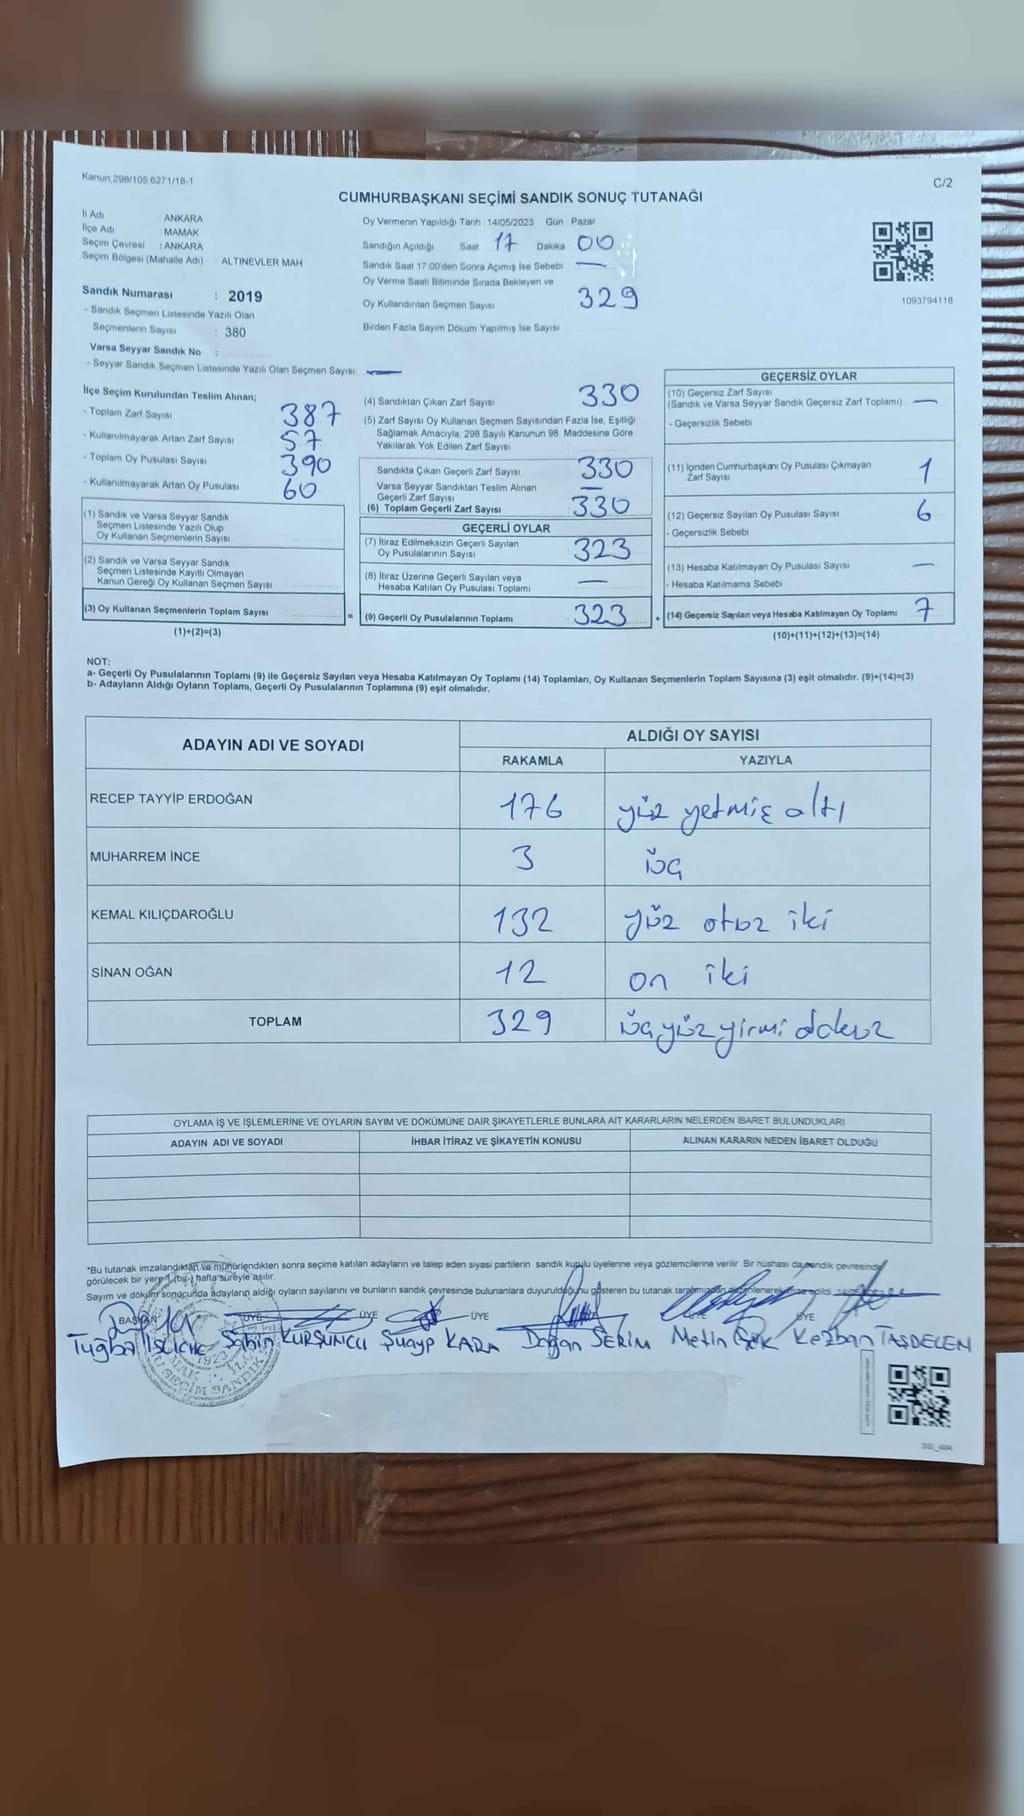 Kanun 298/105 6271/18-1
C/2
CUMHURBAŞKANI SEÇİMİ SANDIK SONUÇ TUTANAĞI
İl Adı ANKARA
İlçe Adı MAMAK
Seçim Çevresi : ANKARA
Seçim Bölgesi (Mahalle Adı) : ALTINEVLER MAH
Sandık Numarası : 2019
- Sandık Seçmen Listesinde Yazılı Olan
Seçmenlerin Sayısı : 380
Varsa Seyyar Sandık No :
- Seyyar Sandık Seçmen Listesinde Yazılı Olan Seçmen Sayısı : —
Oy Vermenin Yapıldığı Tarih : 14/05/2023 Gün : Pazar
Sandığın Açıldığı Saat 17 Dakika 00
Sandık Saat 17:00'den Sonra Açımış İse Sebebi —
Oy Verme Saati Bitiminde Sırada Bekleyen ve
Oy Kullandırılan Seçmen Sayısı 329
Birden Fazla Sayım Döküm Yapılmış İse Sayısı
1093794118
İlçe Seçim Kurulundan Teslim Alınan;
- Toplam Zarf Sayısı 387
- Kullanılmayarak Artan Zarf Sayısı 57
- Toplam Oy Pusulası Sayısı 390
- Kullanılmayarak Artan Oy Pusulası 60
(1) Sandık ve Varsa Seyyar Sandık
Seçmen Listesinde Yazılı Olup
Oy Kullanan Seçmenlerin Sayısı
(2) Sandık ve Varsa Seyyar Sandık
Seçmen Listesinde Kayıtlı Olmayan
Kanun Gereği Oy Kullanan Seçmen Sayısı
(3) Oy Kullanan Seçmenlerin Toplam Sayısı =
(1)+(2)=(3)
(4) Sandıktan Çıkan Zarf Sayısı 330
(5) Zarf Sayısı Oy Kullanan Seçmen Sayısından Fazla İse, Eşitliği
Sağlamak Amacıyla, 298 Sayılı Kanunun 98. Maddesine Göre
Yakılarak Yok Edilen Zarf Sayısı
Sandıkta Çıkan Geçerli Zarf Sayısı 330
Varsa Seyyar Sandıktan Teslim Alınan
Geçerli Zarf Sayısı —
(6) Toplam Geçerli Zarf Sayısı 330
GEÇERLİ OYLAR
(7) İtiraz Edilmeksizin Geçerli Sayılan
Oy Pusulalarının Sayısı 323
(8) İtiraz Üzerine Geçerli Sayılan veya
Hesaba Katılan Oy Pusulası Toplamı —
(9) Geçerli Oy Pusulalarının Toplamı 323 +
GEÇERSİZ OYLAR
(10) Geçersiz Zarf Sayısı
(Sandık ve Varsa Seyyar Sandık Geçersiz Zarf Toplamı) —
- Geçersizlik Sebebi
(11) İçinden Cumhurbaşkanı Oy Pusulası Çıkmayan
Zarf Sayısı 1
(12) Geçersiz Sayılan Oy Pusulası Sayısı 6
- Geçersizlik Sebebi
(13) Hesaba Katılmayan Oy Pusulası Sayısı —
- Hesaba Katılmama Sebebi
(14) Geçersiz Sayılan veya Hesaba Katılmayan Oy Toplamı 7
(10)+(11)+(12)+(13)=(14)
NOT:
a- Geçerli Oy Pusulalarının Toplamı (9) ile Geçersiz Sayılan veya Hesaba Katılmayan Oy Toplamı (14) Toplamları, Oy Kullanan Seçmenlerin Toplam Sayısına (3) eşit olmalıdır. (9)+(14)=(3)
b- Adayların Aldığı Oyların Toplamı, Geçerli Oy Pusulalarının Toplamına (9) eşit olmalıdır.
ADAYIN ADI VE SOYADI ALDIĞI OY SAYISI
RAKAMLA YAZIYLA
RECEP TAYYİP ERDOĞAN 176 yüz yetmiş altı
MUHARREM İNCE 3 üç
KEMAL KILIÇDAROĞLU 132 yüz otuz iki
SİNAN OĞAN 12 on iki
TOPLAM 329 üçyüzyirmi dokuz
OYLAMA İŞ VE İŞLEMLERİNE VE OYLARIN SAYIM VE DÖKÜMÜNE DAİR ŞİKAYETLERLE BUNLARA AİT KARARLARIN NELERDEN İBARET BULUNDUKLARI
ADAYIN ADI VE SOYADI İHBAR İTİRAZ VE ŞİKAYETİN KONUSU ALINAN KARARIN NEDEN İBARET OLDUĞU
*Bu tutanak imzalandıktan ve mühürlendikten sonra seçime katılan adayların ve talep eden siyasi partilerin sandık kurulu üyelerine veya gözlemcilerine verilir. Bir nüshası da sandık çevresinde
görülecek bir yere 1 (bir) hafta süreyle asılır.
Sayım ve döküm sonucunda adayların aldığı oyların sayılarını ve bunların sandık çevresinde bulunanlara duyurulduğunu gösteren bu tutanak tarafımızdan düzenlenerek imza edildi
BAŞKAN ÜYE ÜYE ÜYE ÜYE
Tuğba Şahin KURŞUNCU Şuayp KARA Doğan SERİM Metin Kezban TAŞDELEN
1923
SEÇİM SANDIK